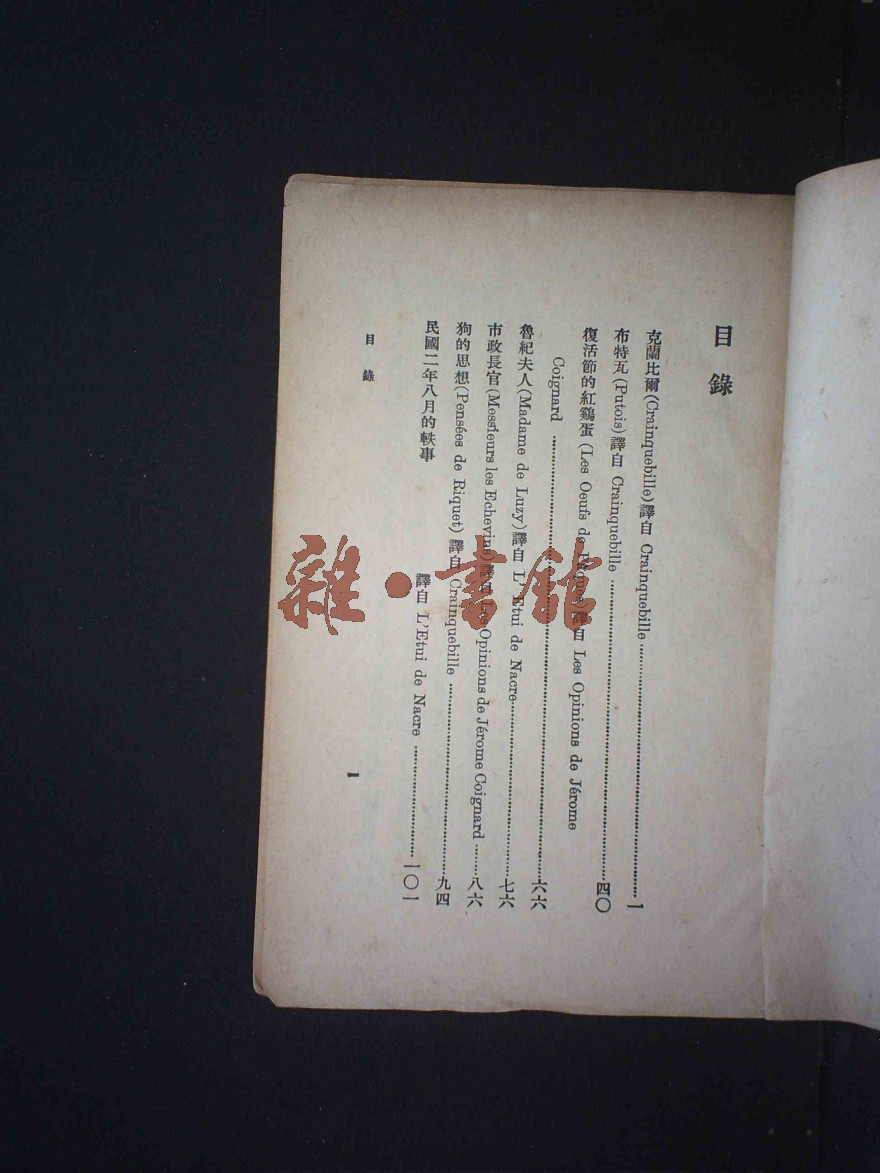 目錄
克蘭比爾(Crainquebille)譯自 Crainquebille……一
布特瓦(Putois)譯自 Crainquebille……四〇
復活節的紅鷄蛋(Les Oeufs de Pâques)譯自 Les Opinions de Jérome
Coignard……六六
魯紀夫人(Madame de Luzy)譯自 L'Etui de Nacre……七六
市政長官(Messieurs les Echevins)譯自 Les Opinions de Jérome Coignard……八六
狗的思想(Pensées de Riquet)譯自 Crainquebille……九四
民國二年八月的軼事 譯自 L'Etui de Nacre……一〇一
目錄
一
雜·書館